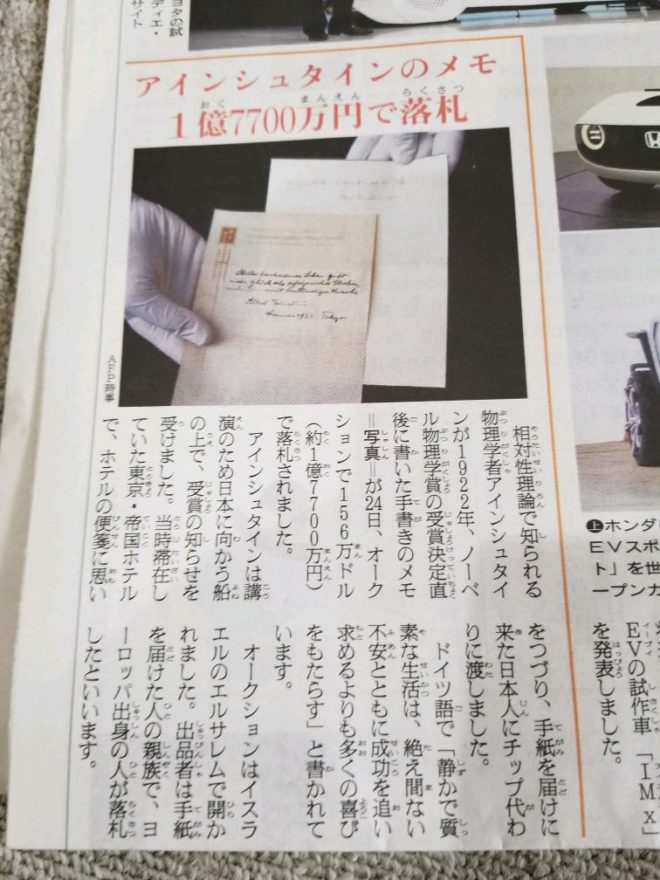 ヨタの試
ディエ・
サイト
アインシュタインのメモ
1億7700万円で落札
AFP時事
相対性理論で知られる
物理学者アインシュタイ
ンが1922年、ノーベ
ル物理学賞の受賞決定直
後に書いた手書きのメモ
＝写真＝が24日、オーク
ションで156万ドル
（約1億7700万円）
で落札されました。
アインシュタインは講
演のため日本に向かう船
の上で、受賞の知らせを
受けました。当時滞在し
ていた東京・帝国ホテル
で、ホテルの便箋に思い
をつづり、手紙を届けに
来た日本人にチップ代わ
りに渡しました。
ドイツ語で「静かで質
素な生活は、絶え間ない
不安とともに成功を追い
求めるよりも多くの喜び
をもたらす」と書かれて
います。
オークションはイスラ
エルのエルサレムで開か
れました。出品者は手紙
を届けた人の親族で、ヨ
ーロッパ出身の人が落札
したといいます。
上ホンダ
EVスポ
ト」を世
ープンカ
EVの試作車「IMx
を発表しました。